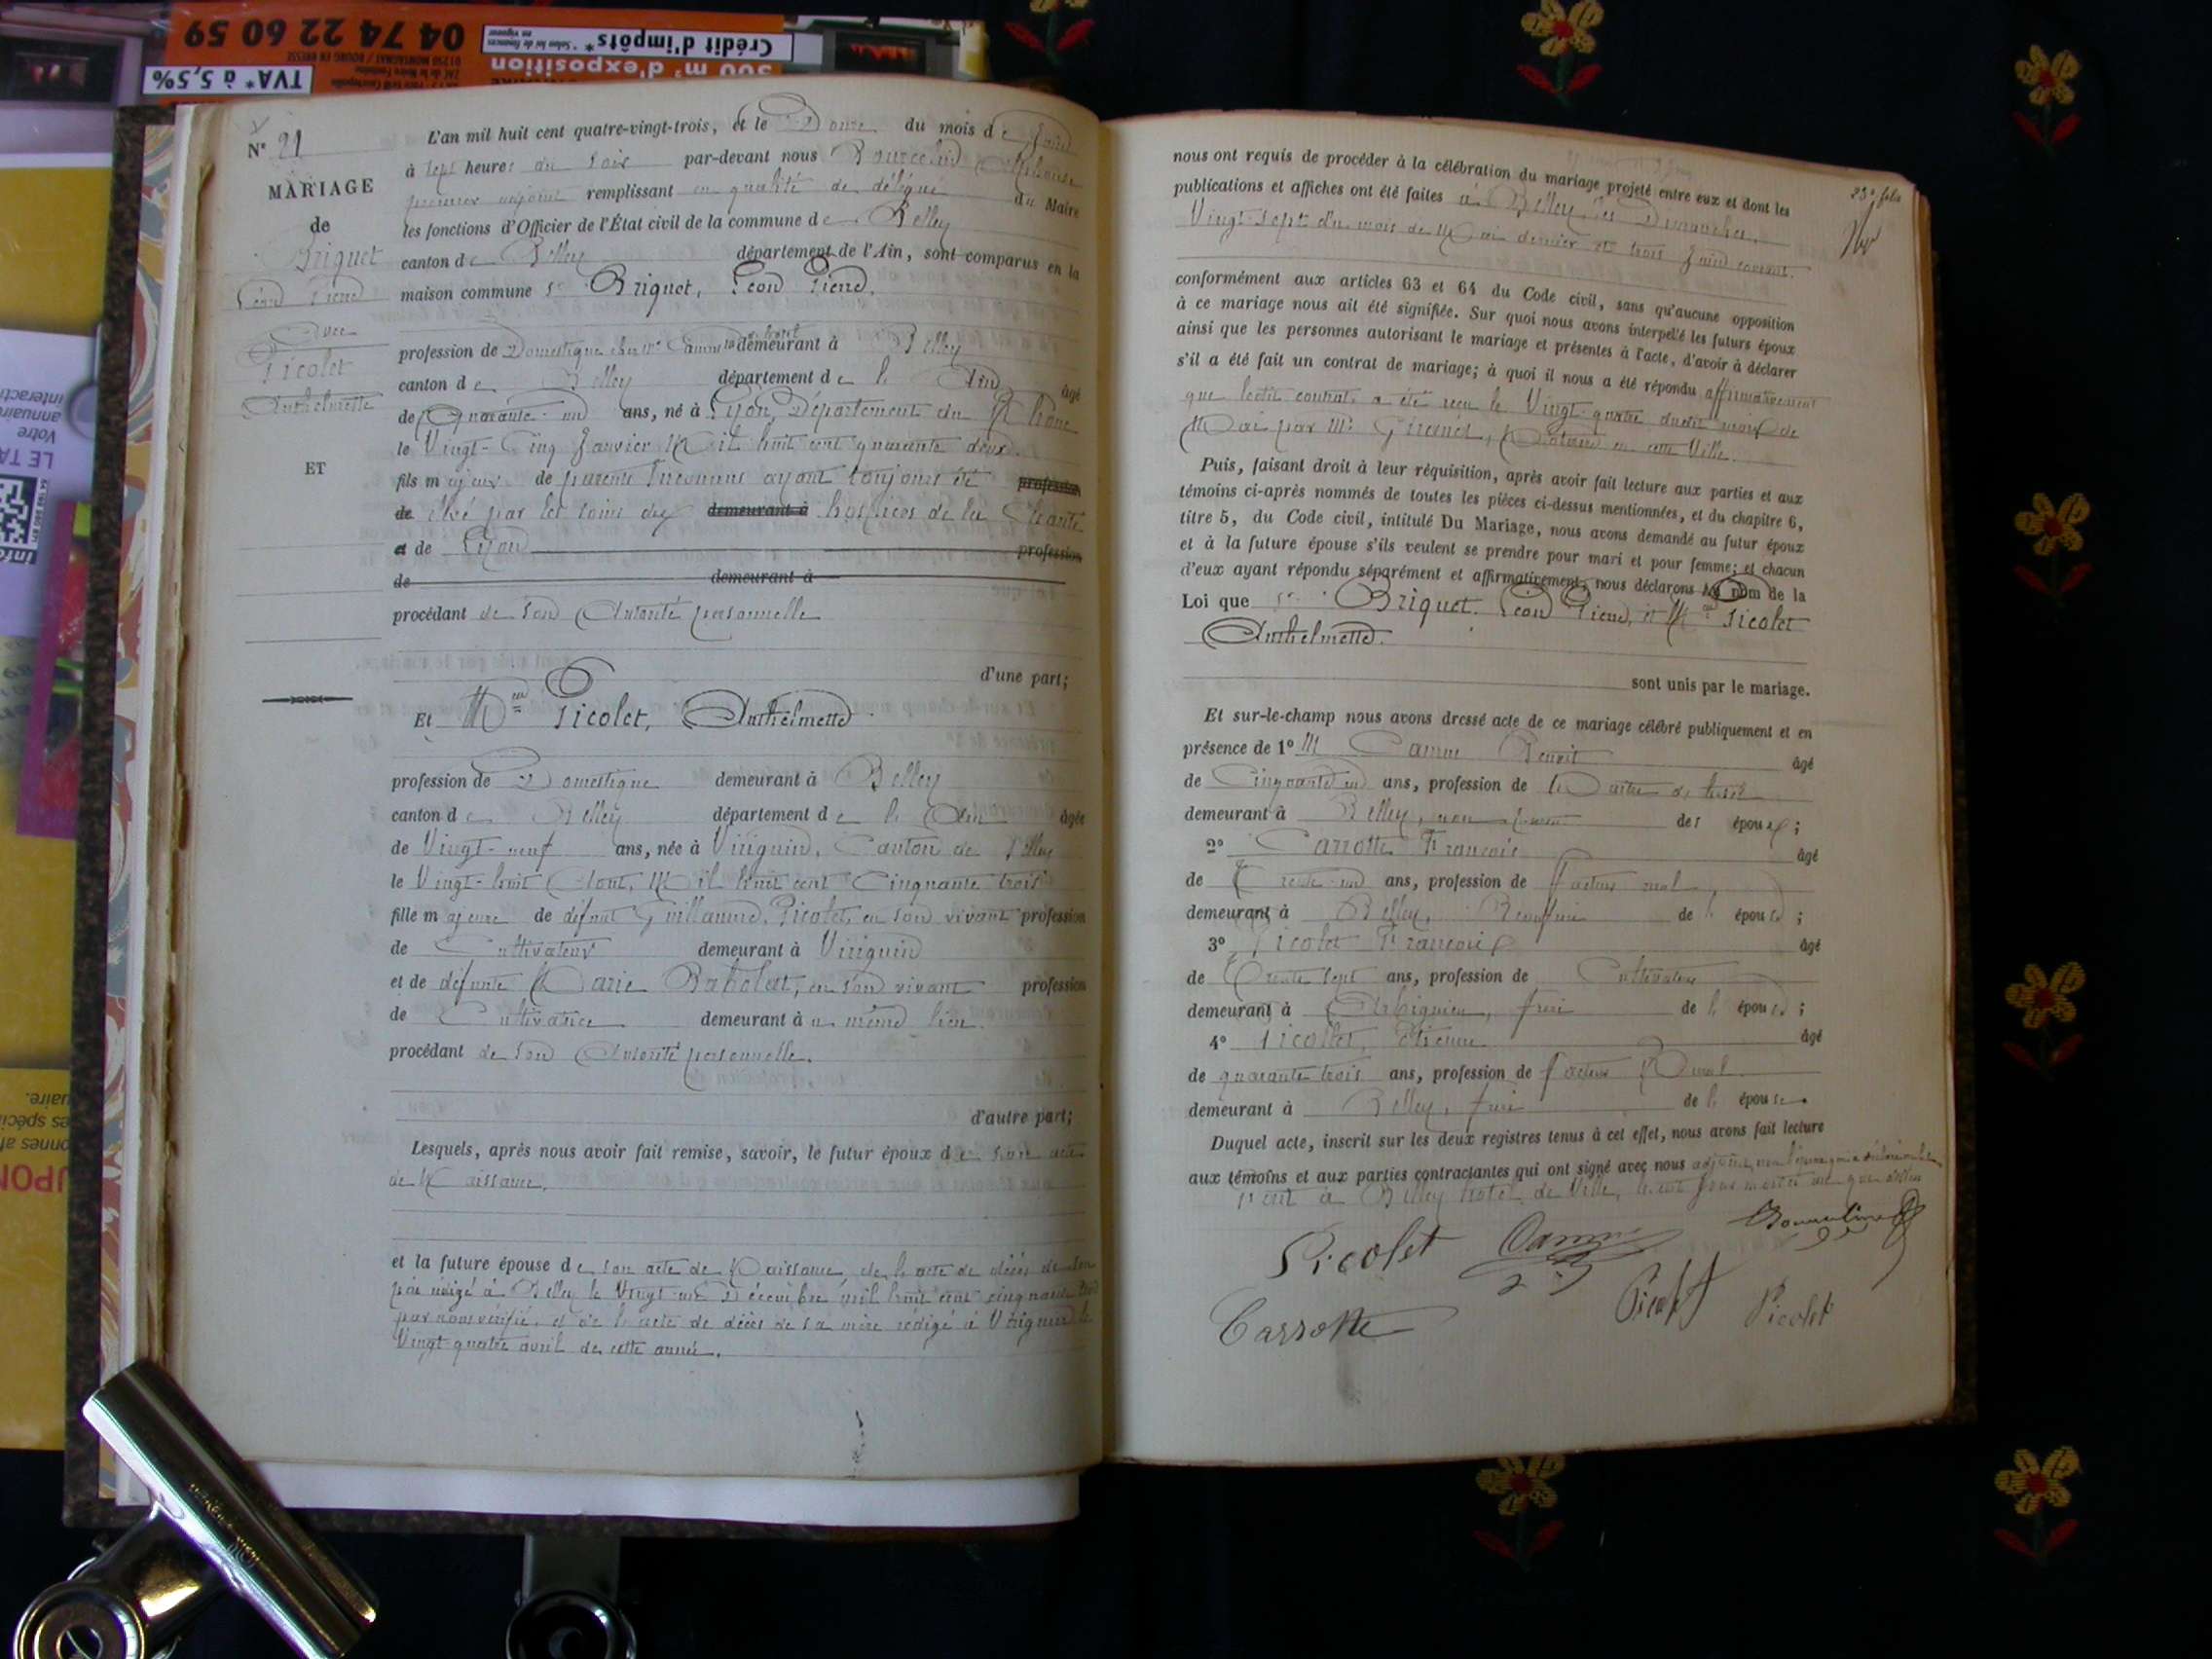 04 74 22 60 59
Crédit d'impôts*
TVA* à 5,5%
500 m² d'exposition
N° 21
MARIAGE
de
Briquet
Léon Pierre
avec
Picolet
Anthelmette
ET
L'an mil huit cent quatre-vingt-trois, et le Douze du mois de Juin
à sept heures du soir par-devant nous
premier adjoint remplissant en qualité de délégué du Maire
les fonctions d'Officier de l'État civil de la commune de Belley
canton de Belley département de l'Ain, sont comparus en la
maison commune Sr Briquet, Léon Pierre,
profession de Domestique chez Mr demeurant à Belley
canton de Belley département de l'Ain âgé
de Quarante-un ans, né à Lyon, Département du Rhône
le Vingt-Cinq Janvier Mil huit cent quarante deux.
fils majeur de parents Inconnus ayant toujours été profession
de élevé par les soins des demeurant à hospices de la Charité
et de Lyon profession
de demeurant à
procédant de son Autorité personnelle
d'une part;
Et Melle Picolet, Anthelmette
profession de Domestique demeurant à Belley
canton de Belley département de l'Ain âgée
de Vingt-neuf ans, née à Virignin, Canton de Belley
le Vingt-huit Août, Mil huit cent Cinquante trois
fille majeure de défunt Guillaume Picolet, en son vivant profession
de Cultivateur demeurant à Virignin
et de défunte Marie en son vivant profession
de Cultivatrice demeurant à même lieu.
procédant de son Autorité personnelle.
d'autre part;
Lesquels, après nous avoir fait remise, savoir, le futur époux de son acte
de Naissance,
et la future épouse de son acte de Naissance, de l'acte de décès de son
père rédigé à Belley le Vingt-un Décembre mil huit cent cinquante
par nous vérifié, et de l'acte de décès de sa mère rédigé à Virignin le
Vingt-quatre avril de cette année.
nous ont requis de procéder à la célébration du mariage projeté entre eux et dont les
publications et affiches ont été faites à Belley les Dimanches,
Vingt-sept du mois de Mai dernier et trois Juin courant.
conformément aux articles 63 et 64 du Code civil, sans qu'aucune opposition
à ce mariage nous ait été signifiée. Sur quoi nous avons interpelé les futurs époux
ainsi que les personnes autorisant le mariage et présentes à l'acte, d'avoir à déclarer
s'il a été fait un contrat de mariage; à quoi il nous a été répondu affirmativement
que ledit contrat a été reçu le Vingt-quatre dudit mois de
Mai par Me Notaire en cette Ville.
Puis, faisant droit à leur réquisition, après avoir fait lecture aux parties et aux
témoins ci-après nommés de toutes les pièces ci-dessus mentionnées, et du chapitre 6,
titre 5, du Code civil, intitulé Du Mariage, nous avons demandé au futur époux
et à la future épouse s'ils veulent se prendre pour mari et pour femme; et chacun
d'eux ayant répondu séparément et affirmativement, nous déclarons au nom de la
Loi que Sr Briquet, Léon Pierre, et Melle Picolet
Anthelmette.
sont unis par le mariage.
Et sur-le-champ nous avons dressé acte de ce mariage célébré publiquement et en
présence de 1° M Benoit âgé
de Cinquante un ans, profession de
demeurant à Belley, non parent des époux;
2° Carrotte François âgé
de Trente-un ans, profession de facteur rural,
demeurant à Belley, Beau frère de l'épouse;
3° Picolet François âgé
de Trente sept ans, profession de Cultivateur
demeurant à Arbignieu, frère de l'épouse;
4° Picollet, Etienne âgé
de quarante-trois ans, profession de facteur Rural
demeurant à Belley, frère de l'épouse.
Duquel acte, inscrit sur les deux registres tenus à cet effet, nous avons fait lecture
aux témoins et aux parties contractantes qui ont signé avec nous
Fait à Belley hotel de Ville,
Picolet
Carrotte
Picolet
Picolet